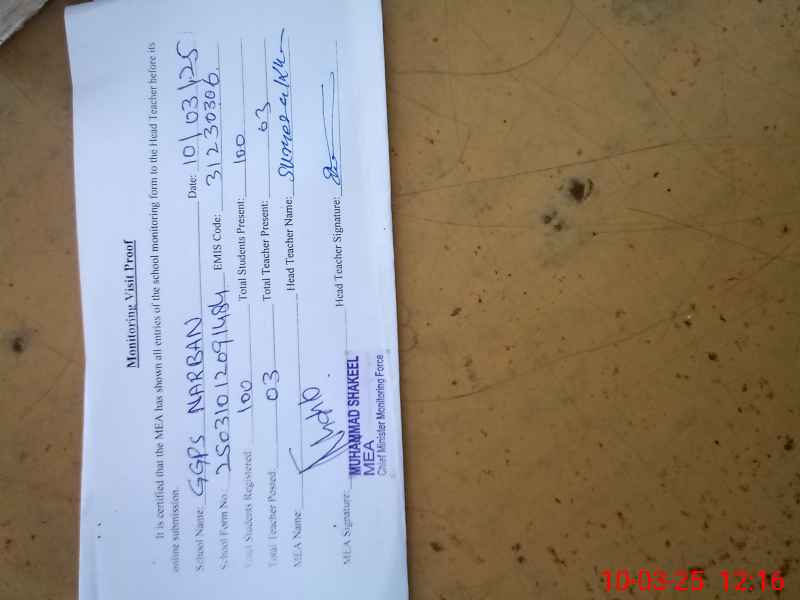 Monitoring Visit Proof
It is certified that the MEA has shown all entries of the school monitoring form to the Head Teacher before its
online submission.
School Name: GGPS NARBAN Date: 10/03/25
School Form No.: 250310120911484 EMIS Code: 31230306
Total Students Registered 100 Total Students Present: 100
Total Teacher Posted 03 Total Teacher Present: 03
MEA Name: Head Teacher Name:
MEA Signature: Head Teacher Signature:
MUHAMMAD SHAKEEL
MEA
Chief Minister Monitoring Force
10-03-25 12:16